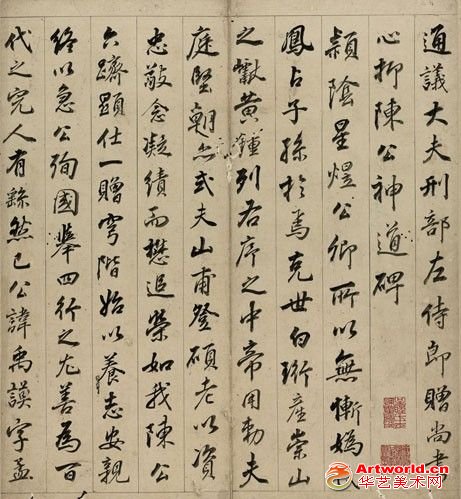 通議大夫刑部左侍郎贈尚書
心抑陳公神道碑
潁陰星煜公卿所以無慚媯汭
鳳占子孫於焉克世白珩產崇山
之獸黃鍾列右序之中帝用勅夫
庭堅朝亦式夫山甫登碩老以資
忠敵念凝績而懋追榮如我陳公
六躋顯仕一贈穹階始以養志安親
終以急公殉國舉四行之尤善為百
代之完人有繇然已公諱禹謨字孟
Artworld.cn
华艺美术网